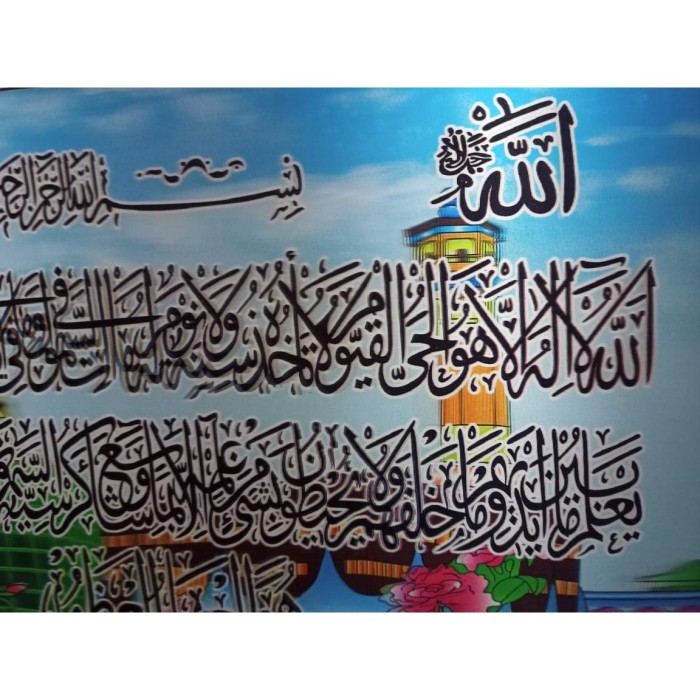 الله جل جلاله
بسم الله الرحمن الرحيم
الله لا اله الا هو الحي القيوم لا تأخذه سنة ولا نوم له ما في السموات وما في
يعلم ما بين ايديهم وما خلفهم ولا يحيطون بشيء من علمه الا بما شاء وسع كرسيه السموات
هو العلي العظيم